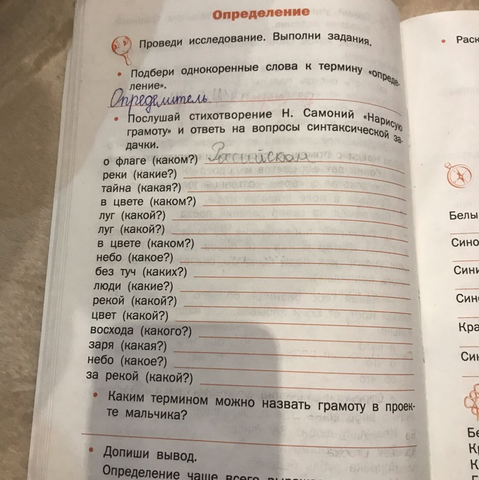 Определение
Проведи исследование. Выполни задания.
• Подбери однокоренные слова к термину «опреде-
ление».
Определитель
• Послушай стихотворение Н. Самоний «Нарисую
грамоту» и ответь на вопросы синтаксической за-
дачки.
о флаге (каком?) Российском
реки (какие?)
тайна (какая?)
в цвете (каком?)
луг (какой?)
луг (какой?)
в цвете (каком?)
небо (какое?)
без туч (каких?)
люди (какие?)
рекой (какой?)
цвет (какой?)
восхода (какого?)
заря (какая?)
небо (какое?)
за рекой (какой?)
• Каким термином можно назвать грамоту в проек-
те мальчика?
• Допиши вывод.
Определение чаще всего
• Раск
Белы
Сино
Сини
Сино
Кра
Син
Бе
К
К